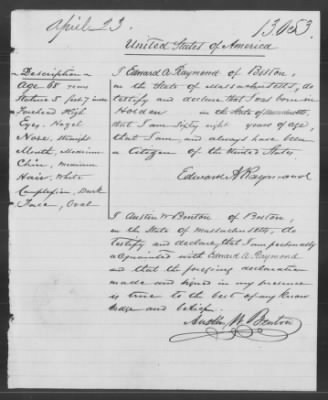 April 23
13053
United States of America
Description
Age 68 years
Stature 5 feet 7 inches
Forehead High
Eyes, Hazel
Nose, straight
Mouth, Medium
Chin, Medium
Hair, White
Complexion, Dark
Face, Oval
I Edward A. Raymond of Boston,
in the State of Massachusetts, do
testify and declare that I was born in
Holden in the State of Massachusetts,
that I am sixty eight years of age,
that I am, and always have been
a Citizen of the United States.
Edward A Raymond
I Austin W Benton of Boston,
in the State of Massachusetts, do
testify and declare, that I am personally
acquainted with Edward A. Raymond
and that the forgoing declaration
made and signed in my presence
is true to the best of my know
ledge and belief.
Austin W. Benton